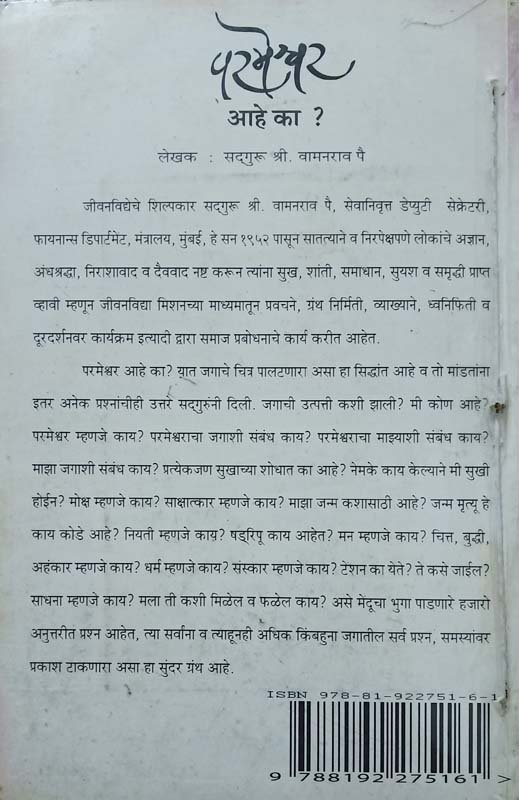 परमेश्वर
आहे का ?
लेखक : सद्‌गुरू श्री. वामनराव पै
जीवनविद्येचे शिल्पकार सद्‌गुरू श्री. वामनराव पै, सेवानिवृत्त डेप्युटी सेक्रेटरी,
फायनान्स डिपार्टमेंट, मंत्रालय, मुंबई, हे सन १९५२ पासून सातत्याने व निरपेक्षपणे लोकांचे अज्ञान,
अंधश्रद्धा, निराशावाद व दैववाद नष्ट करून त्यांना सुख, शांती, समाधान, सुयश व समृद्धी प्राप्त
व्हावी म्हणून जीवनविद्या मिशनच्या माध्यमातून प्रवचने, ग्रंथ निर्मिती, व्याख्याने, ध्वनिफिती व
दूरदर्शनवर कार्यक्रम इत्यादी द्वारा समाज प्रबोधनाचे कार्य करीत आहेत.
परमेश्वर आहे का? यात जगाचे चित्र पालटणारा असा हा सिद्धांत आहे व तो मांडतांना
इतर अनेक प्रश्नांचीही उत्तरे सद्‌गुरुंनी दिली. जगाची उत्पत्ती कशी झाली? मी कोण आहे?
परमेश्वर म्हणजे काय? परमेश्वराचा जगाशी संबंध काय? परमेश्वराचा माझ्याशी संबंध काय?
माझा जगाशी संबंध काय? प्रत्येकजण सुखाच्या शोधात का आहे? नेमके काय केल्याने मी सुखी
होईन? मोक्ष म्हणजे काय? साक्षात्कार म्हणजे काय? माझा जन्म कशासाठी आहे? जन्म मृत्यू हे
काय कोडे आहे? नियती म्हणजे काय? षड्‌रिपू काय आहेत? मन म्हणजे काय? चित्त, बुद्धी,
अहंकार म्हणजे काय? धर्म म्हणजे काय? संस्कार म्हणजे काय? टेंशन का येते? ते कसे जाईल?
साधना म्हणजे काय? मला ती कशी मिळेल व फळेल काय? असे मेंदूचा भुगा पाडणारे हजारो
अनुत्तरीत प्रश्न आहेत, त्या सर्वांना व त्याहूनही अधिक किंबहुना जगातील सर्व प्रश्न, समस्यांवर
प्रकाश टाकणारा असा हा सुंदर ग्रंथ आहे.
ISBN 978-81-922751-6-1
9 788192 275161 >